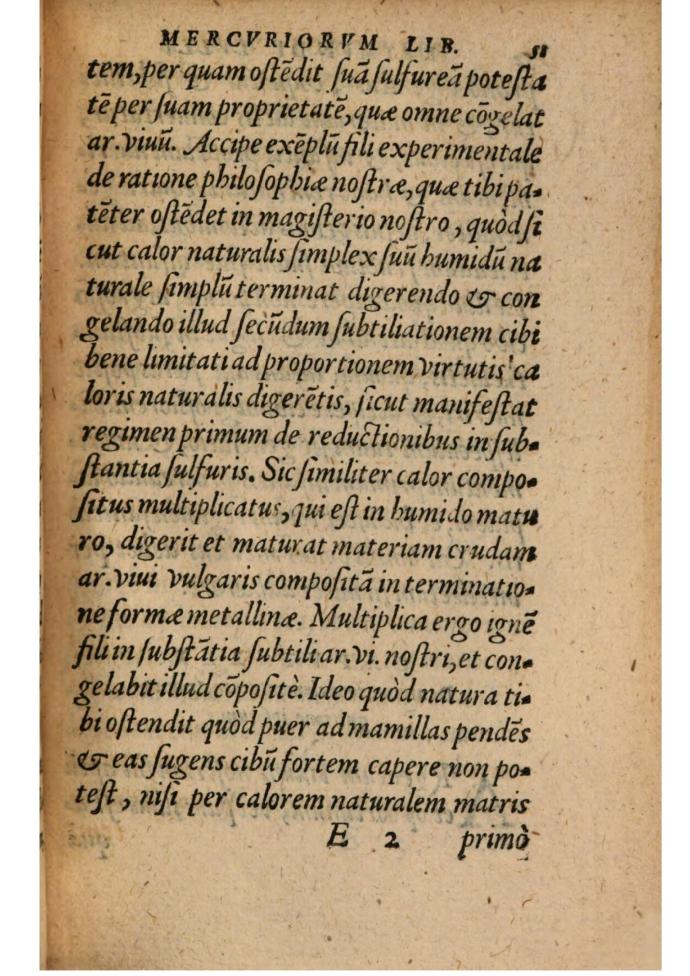 MERCVRIORVM LIB. 51
tem, per quam ostẽdit suã sulfureã potesta
tẽ per suam proprietatẽ, quæ omne cõgelat
ar. viuũ. Accipe exẽplũ fili experimentale
de ratione philosophiæ nostræ, quæ tibi pa-
tẽter ostẽdet in magisterio nostro, quòd si
cut calor naturalis simplex suũ humidũ na
turale simplũ terminat digerendo & con
gelando illud secũdum subtiliationem cibi
bene limitati ad proportionem virtutis ca
loris naturalis digerẽtis, sicut manifestat
regimen primum de reductionibus in sub-
stantia sulfuris. Sic similiter calor compo-
situs multiplicatus, qui est in humido matu
ro, digerit et maturat materiam crudam
ar. viui vulgaris compositã in terminatio-
ne formæ metallinæ. Multiplica ergo ignẽ
fili in substãtia subtili ar. vi. nostri, et con-
gelabit illud cõpositè. Ideo quòd natura ti-
bi ostendit quòd puer ad mamillas pendẽs
& eas sugens cibũ fortem capere non po-
test, nisi per calorem naturalem matris
E 2 primò